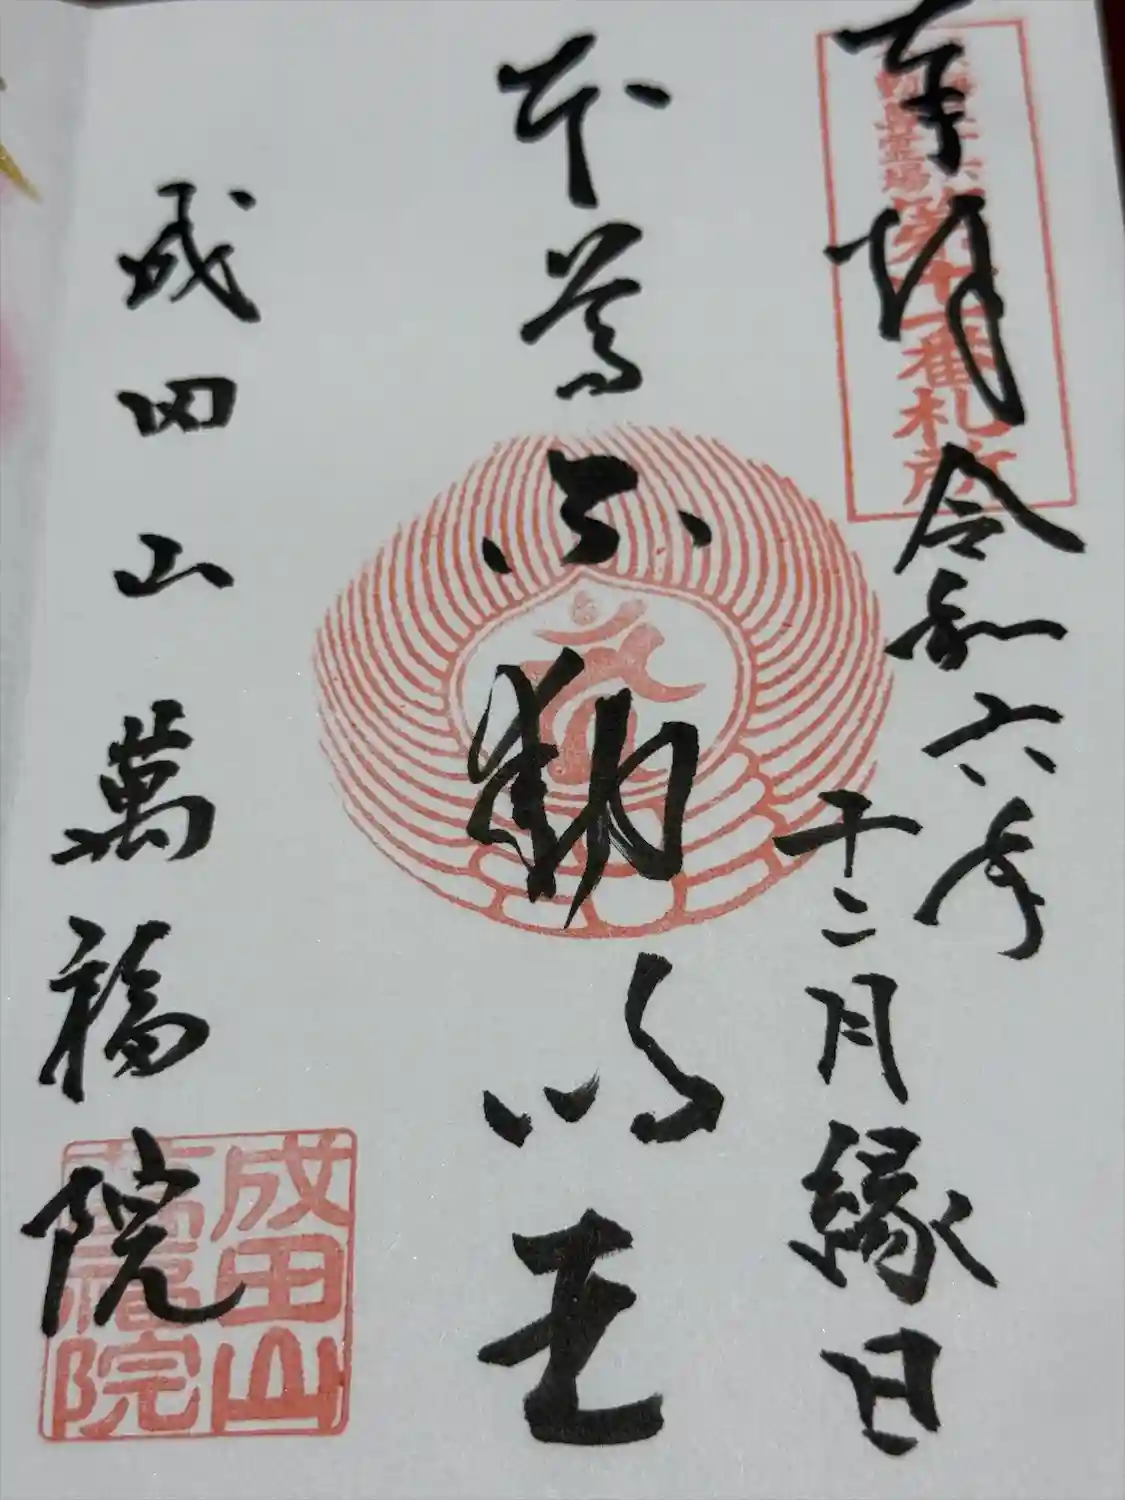 奉拝
令和六年
十二月縁日
第十一番札所
本尊
不動明王
成田山萬福院
成田山
萬福院